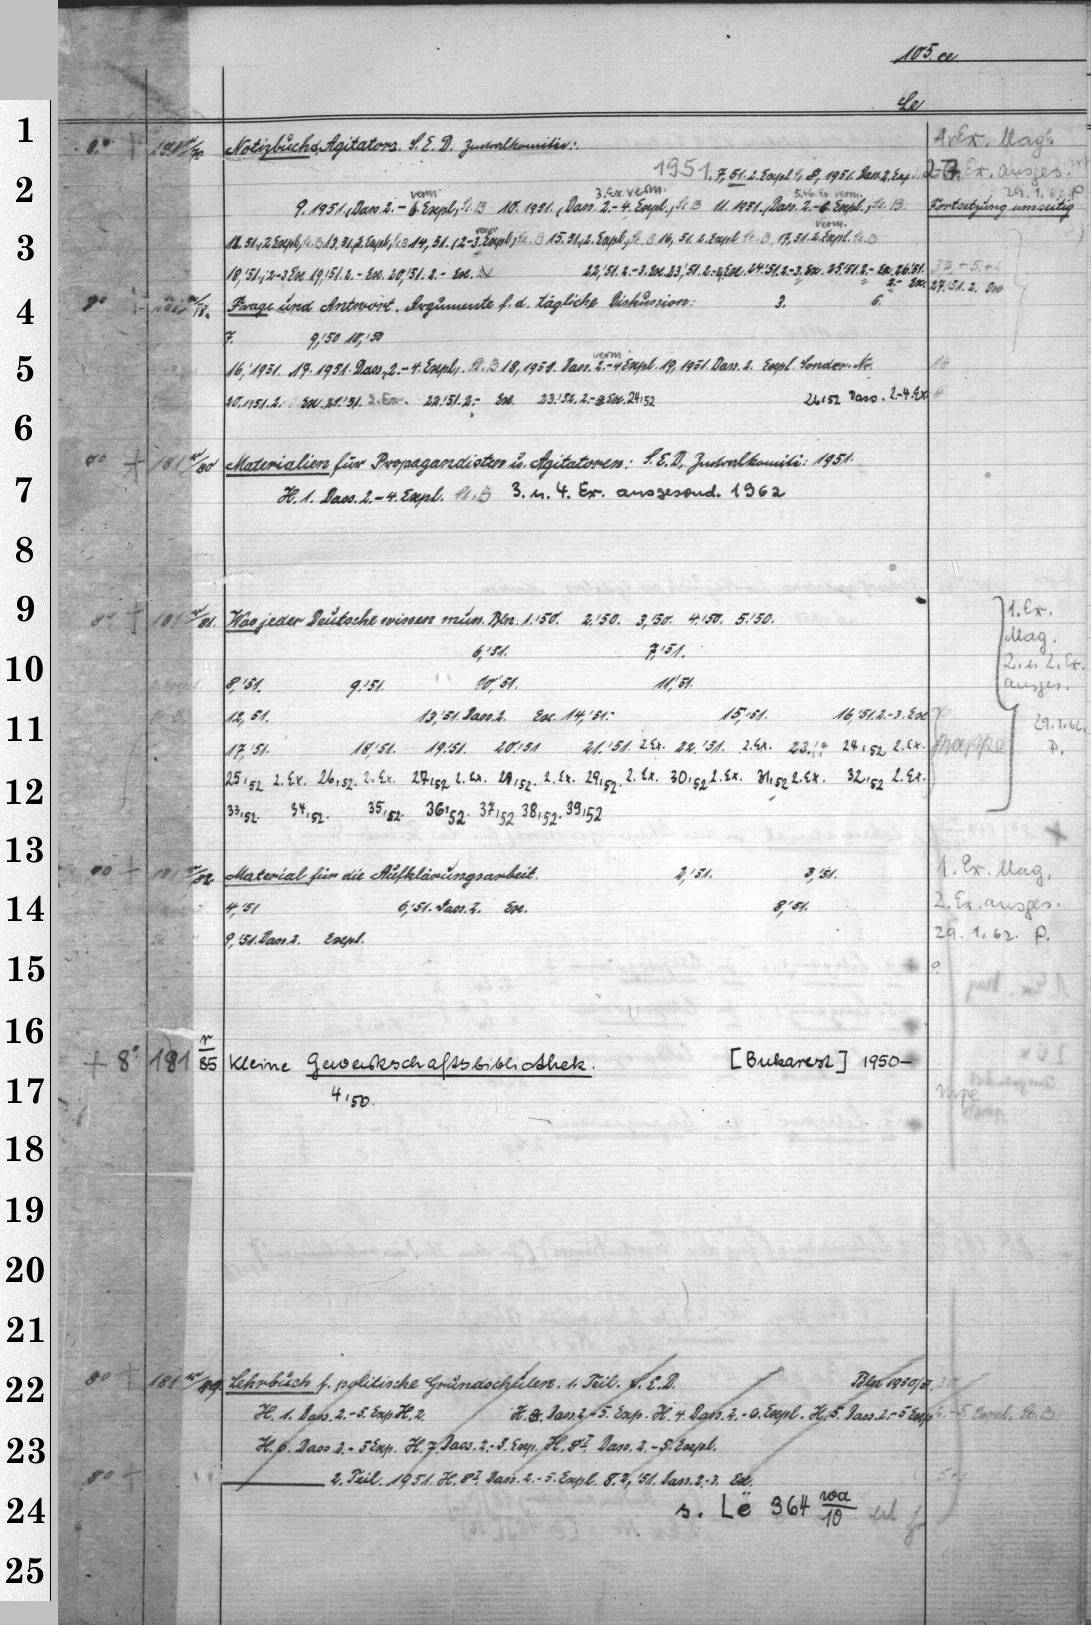 105 ce
Le
1
8° + 181 w/70 Notizbuch d. Agitators. S.E.D. Zentralkomitee: 1. Ex. Mag.
1951. 7, 51. 2. Expl. 8, 1951. Dass. 2. Exp. 2. Ex. ausges.
29. 1. 62. P
2
verm. 3. Ex. verm. 5.+6. Ex verm.
9. 1951. (Dass. 2. – 6. Expl., St. B 10. 1951. (Dass. 2. – 4. Expl., St. B 11. 1951. (Dass. 2. – 6. Expl., St. B. Fortsetzung umseitig
3
verm.
12. 51., 2 Expl., St. B 13, 51, 2. Expl., St. B 14, 51. (2–3. Expl., St. B 15. 51, 2. Expl., St. B 16, 51. 2. Expl. St. B. 17, 51. 2. Expl. St. B
18, '51., 2–3 Ex. 19, '51. 2. – Ex. 20, '51. 2. – Ex. 22, '51. 2. – 3. Ex. 23, '51. 2. – Ex. 24. '51. 2. – 3. Ex. 25. '51. 2. – Ex. 26. '51.
2. – Ex.
27. '51. 2. Ex
4
8° + Frage und Antwort. Argumente f. d. tägliche Diskussion: 3. 6.
7. 9, '50 10, '50
5
verm.
16, 1951. 17. 1951. Dass. 2. – 4. Expl., St. B 18, 1951. Dass. 2. – 4 Expl. 19, 1951. Dass. 2. Expl. Sonder-Nr.
20. 1951. 2. Ex. 21. '51. 2. Ex. 22. '51. 2. – Ex. 23. '52. 2. – 3 Ex. 24, 52 26, 52 Dass. 2. – 4. Ex.
6
8° + 181 w/80 Materialien für Propagandisten u. Agitatoren: S.E.D. Zentralkomitee: 1951.
7
H. 1. Dass. 2. – 4. Expl. St. B 3. u. 4. Ex. ausgesond. 1962
8
9
8° + 181 w/81. Was jeder Deutsche wissen muss. Bln. 1. '50. 2. '50. 3, '50. 4. '50. 5. '50. 1. Ex.
Mag.
10
6, '51. 7, '51. 2. u. 2. Ex.
8, '51. 9, '51. 10, '51. 11, '51. ausges.
11
12, 51. 13, '51. Dass. 2. Ex. 14, '51. 15, '51. 16, '51. 2. – 3. Ex. 29. 1. 62.
17, '51. 18, '51. 19. '51. 20, '51 21. '51. 2. Ex. 22. '51. 2. Ex. 23. 24, 52 2. Ex. Mappe P.
12
25, 52 2. Ex. 26, 52. 2. Ex. 27, 52 2. Ex. 28, 52. 2. Ex. 29, 52. 2. Ex. 30, 52 2. Ex. 31, 52 2. Ex. 32, 52 2. Ex.
33, 52. 34, 52. 35, 52. 36, 52. 37, 52 38, 52. 39, 52
13
8° + 181 w/82 Material für die Aufklärungsarbeit. 2, '51. 3, '51. 1. Ex. Mag.
14
4, '51 6, '51. Dass. 2. Ex. 8, '51. 2. Ex. ausges.
9, '51. Dass. 2. Expl. 29. 1. 62. P.
15
16
+ 8° 181 r/85 Kleine Gewerkschaftsbibliothek. [Bukarest] 1950–
17
4, 50.
18
19
20
21
22
8° + 181 Lehrbuch f. politische Grundschulen. 1. Teil. S.E.D. Bln 1950/51
H. 1. Dass. 2. – 5. Exp. H. 2. H. 3. Dass. 2. – 5. Exp. H. 4. Dass. 2. – 6. Expl. H. 5. Dass. 2. – 5 Exp
23
H. 6. Dass. 2. – 5 Exp. H. 7. Dass. 2. – 3. Exp. H. 8 I. Dass. 2. – 5. Expl.
8° – 2. Teil. 1951. H. 8 I Dass. 2. – 5. Expl. 8. 2, '51. Dass. 2. – 3. Ex.
24
s. Lë 364 wa/10
25